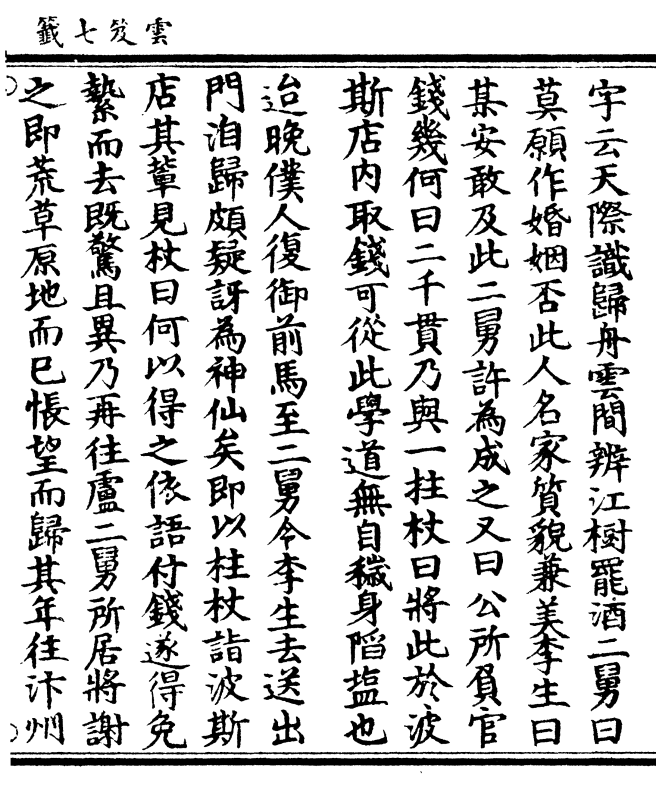 雲笈七籤
字云天際識歸舟雲間辨江樹罷酒二舅曰
莫願作婚姻否此人名家質貌兼美李生曰
某安敢及此二舅許為成之又曰公所負官
錢幾何曰二千貫乃與一拄杖曰將此於波
斯店內取錢可從此學道無自穢身陷塩也
迨晚僕人復御前馬至二舅令李生去送出
門洎歸頗疑訝為神仙矣即以柱杖詣波斯
店其輩見杖曰何以得之依語付錢遂得免
縶而去既驚且異乃再往盧二舅所居將謝
之即荒草原地而已悵望而歸其年往汴州